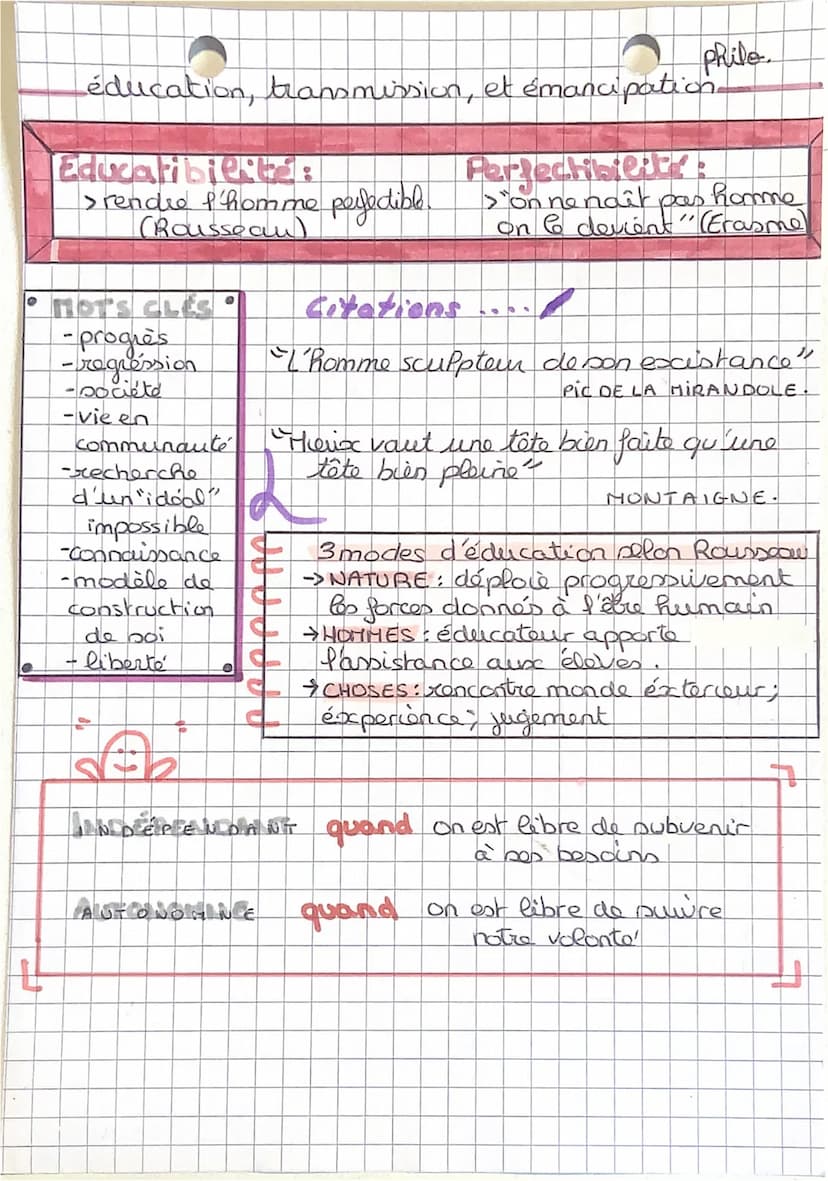 philo.
éducation, transmission, et émancipation
Educatibilité :
> rendre l'homme perfectible.
(Rousseau)
Perfectibilité :
> "on ne naît pas homme
on le devient" (Erasme)
MOTS CLÉS
- progrès
- regréssion
- société
- vie en
communauté
- recherche
d'un "idéal"
impossible
- connaissance
- modèle de
construction
de soi
- liberté
Citations ....
"L'homme sculpteur de son existance"
PIC DE LA MIRANDOLE.
"Mieux vaut une tête bien faite qu'une
tête bien pleine"
MONTAIGNE.
3 modes d'éducation selon Rousseau
→ NATURE : déploie progressivement
les forces donnés à l'être humain
→ HOMMES : éducateur apporte
l'assistance aux élèves.
→ CHOSES : rencontre monde éxterieur ;
éxperience ; jugement
INDÉPENDANT quand on est libre de subvenir
à ses besoins
AUTONOMINE quand on est libre de suivre
notre volonté